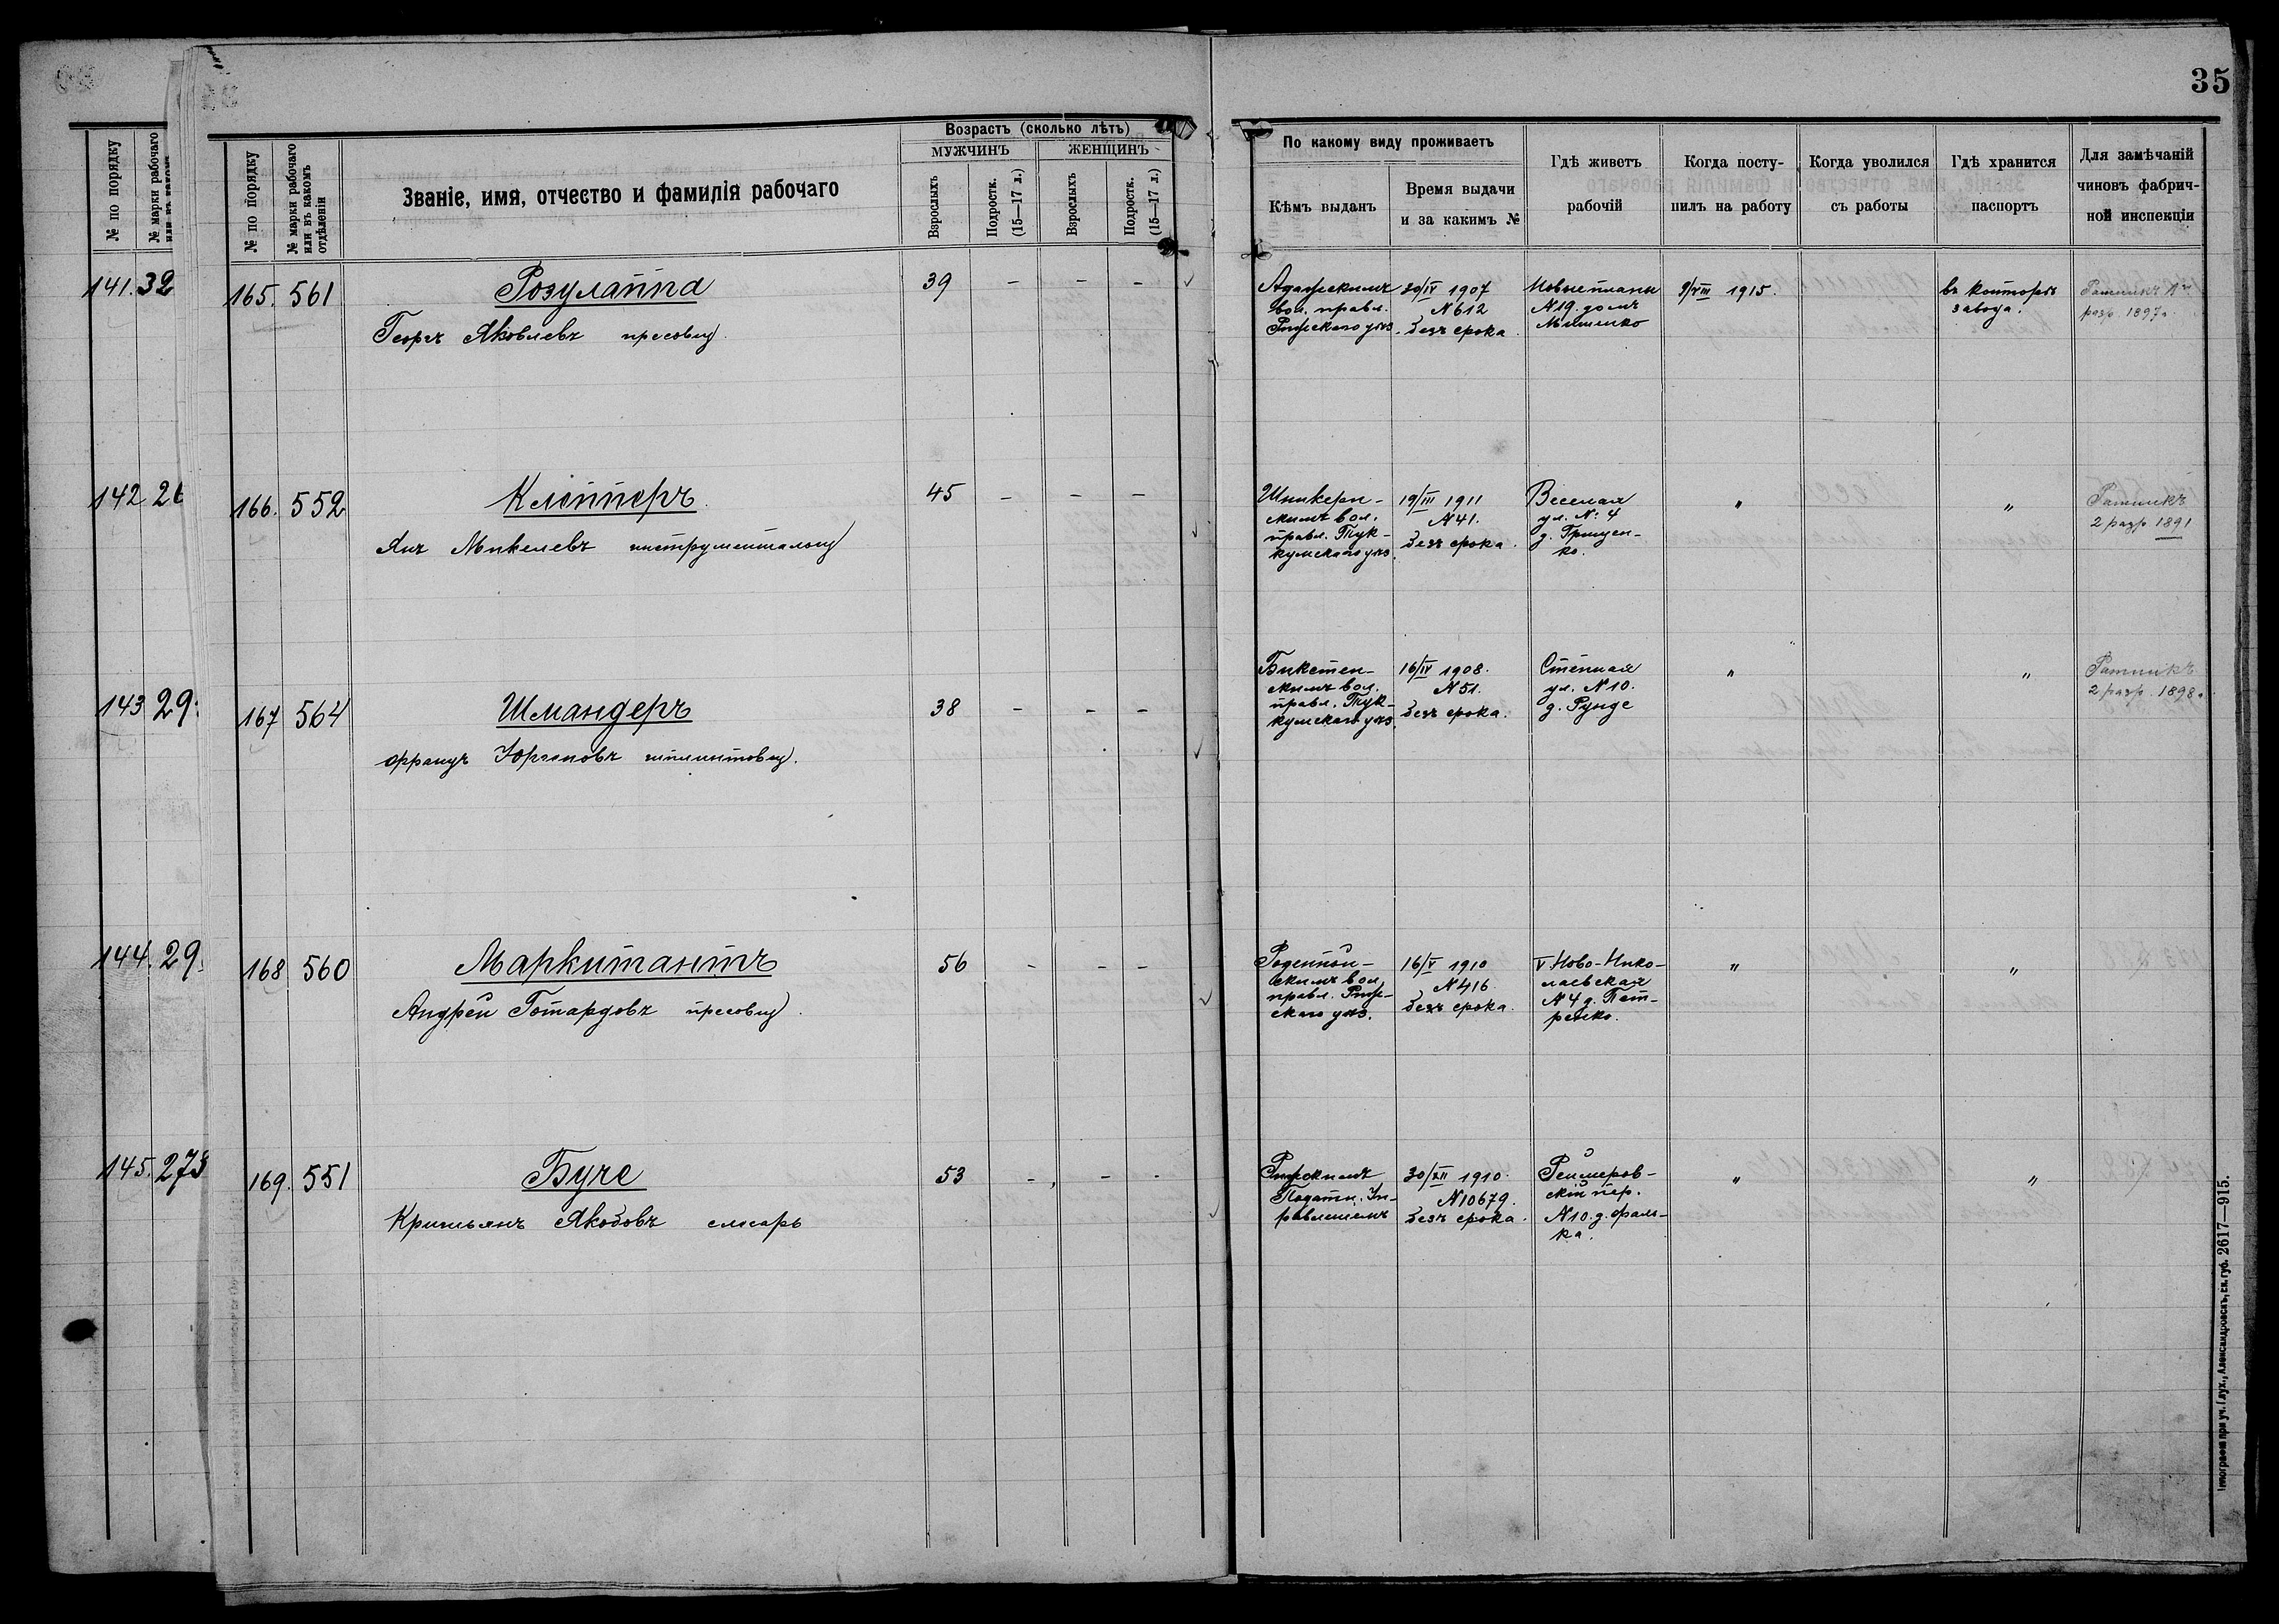 35
№ по порядку
№ марки рабочаго
№ по порядку
№ марки рабочаго или въ какомъ отдѣленіи
Званіе, имя, отчество и фамилія рабочаго
Возрастъ (сколько лѣтъ)
МУЖЧИНЪ
ЖЕНЩИНЪ
Взрослыхъ
Подростк. (15—17 л.)
Взрослыхъ
Подростк. (15—17 л.)
По какому виду проживаетъ
Кѣмъ выданъ
Время выдачи
и за какимъ №
Гдѣ живетъ
рабочій
Когда посту-
пилъ на работу
Когда уволился
съ работы
Гдѣ хранится
паспортъ
Для замѣчаній
чиновъ фабрич-
ной инспекціи
141. 32
142 26
143 29
144. 29
145. 273
165. 561
Розулаппа
Георгъ Яковлевъ пресовщ.
39 - - -
Адажскимъ
вол. правл.
Рижскаго уѣз.
30/IV 1907
№ 612
безъ срока.
Новые планы
№ 19. домъ
Мишенко
9/VIII 1915.
въ конторѣ
завода.
Ратникъ 1го
разр. 1897г.
166. 552
Клеппертъ
Янъ Микелевъ инструментальщ
45 - - -
скимъ вол.
правл. Тук-
кумскаго уѣз.
19/III 1911
№ 41.
безъ срока.
Веселая
ул. №: 4
д. Грицен-
ко.
"
"
Ратникъ
2 разр 1891
167 564
Шмандеръ
Францъ Юргеновъ шплинтовщ.
38 - - -
Бикстен-
скимъ вол.
правл. Тук-
кумскаго уѣз.
16/IV 1908.
№ 51.
безъ срока.
Степная
ул. № 10.
д. Рунде
"
"
Ратникъ
2 разр. 1898г.
168 560
Маркитантъ
Андрей Готардовъ пресовщ.
56 - - -
Роденпой-
скимъ вол.
правл. Риж-
скаго уѣз.
16/V 1910
№ 416
безъ срока.
V Ново-Нико-
лаевская
№ 4 д. Пет-
ренко.
"
"
169. 551
Буче
Кришьянъ Якобовъ слесарь
53 - - -
Рижскимъ
Податн. Уп-
равленіемъ
30/XII 1910.
№ 10679.
безъ срока.
Реймеров-
скій пер.
№ 10. д. Фаль-
ка.
"
"
2617—915.